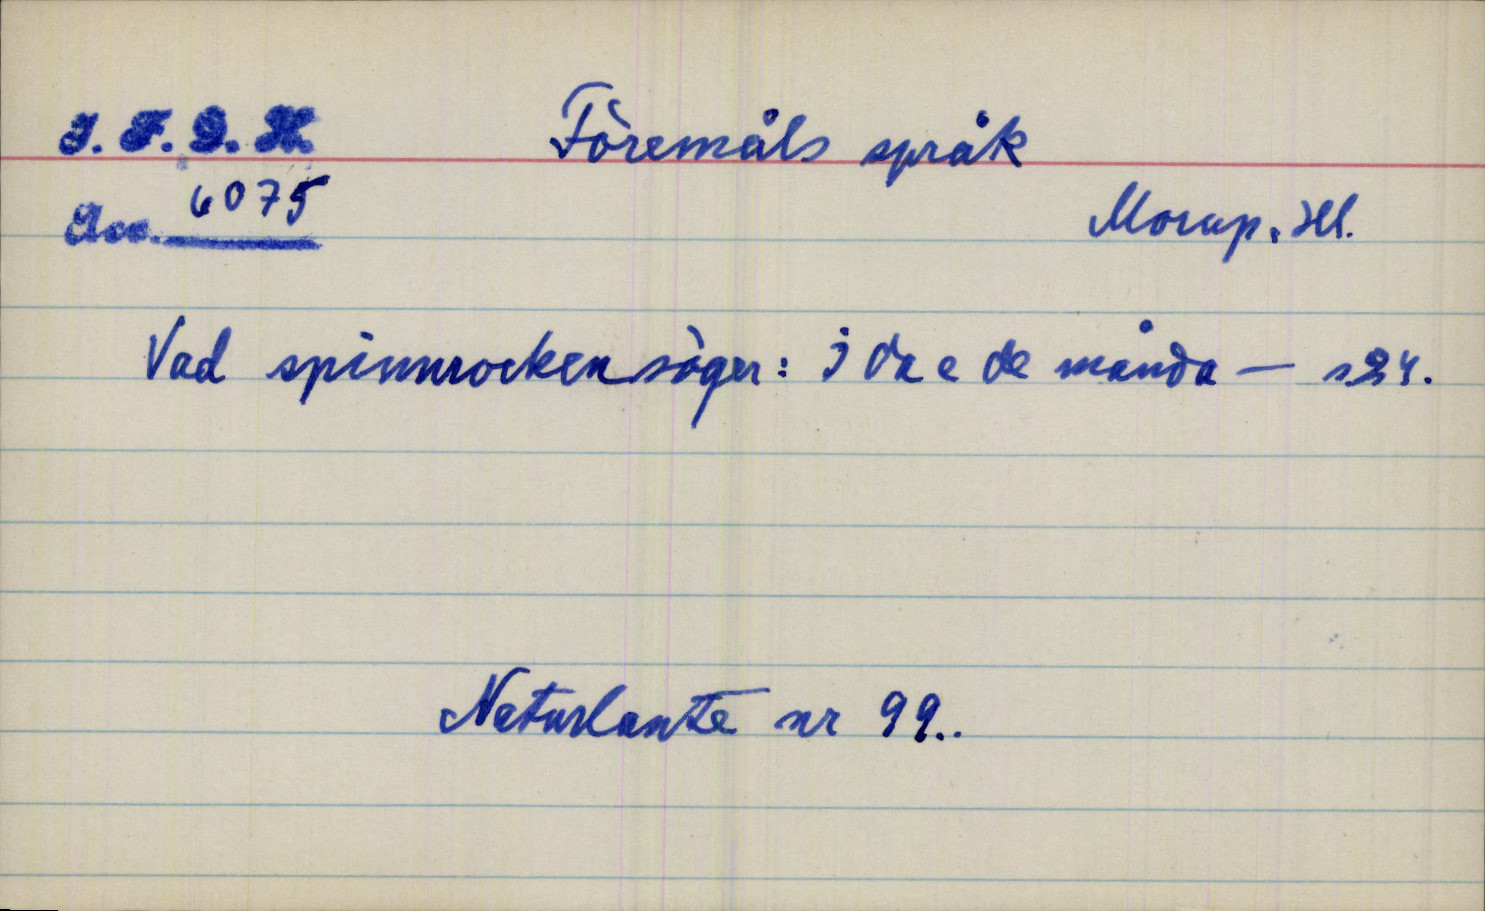 I. F. G. H. Föremåls språk
Acc. 6075 Morup. Hl.
Vad spinnrocken säger: I da e de månda — s. 24.
Naturlante nr 99.